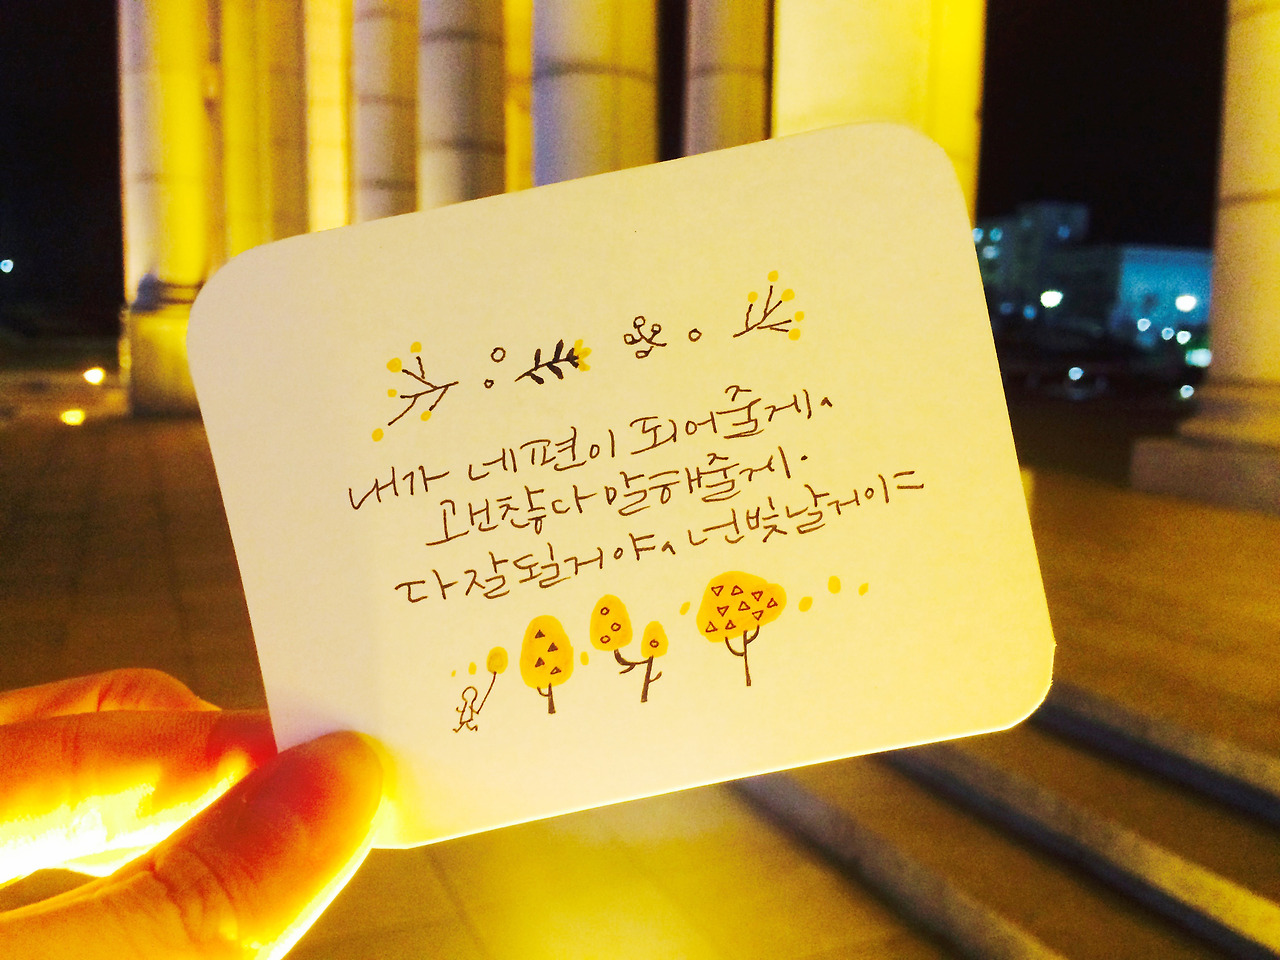 내가 네편이 되어줄게.
괜찮다 말해줄게.
다 잘 될거야. 넌 빛날거이ㄷ